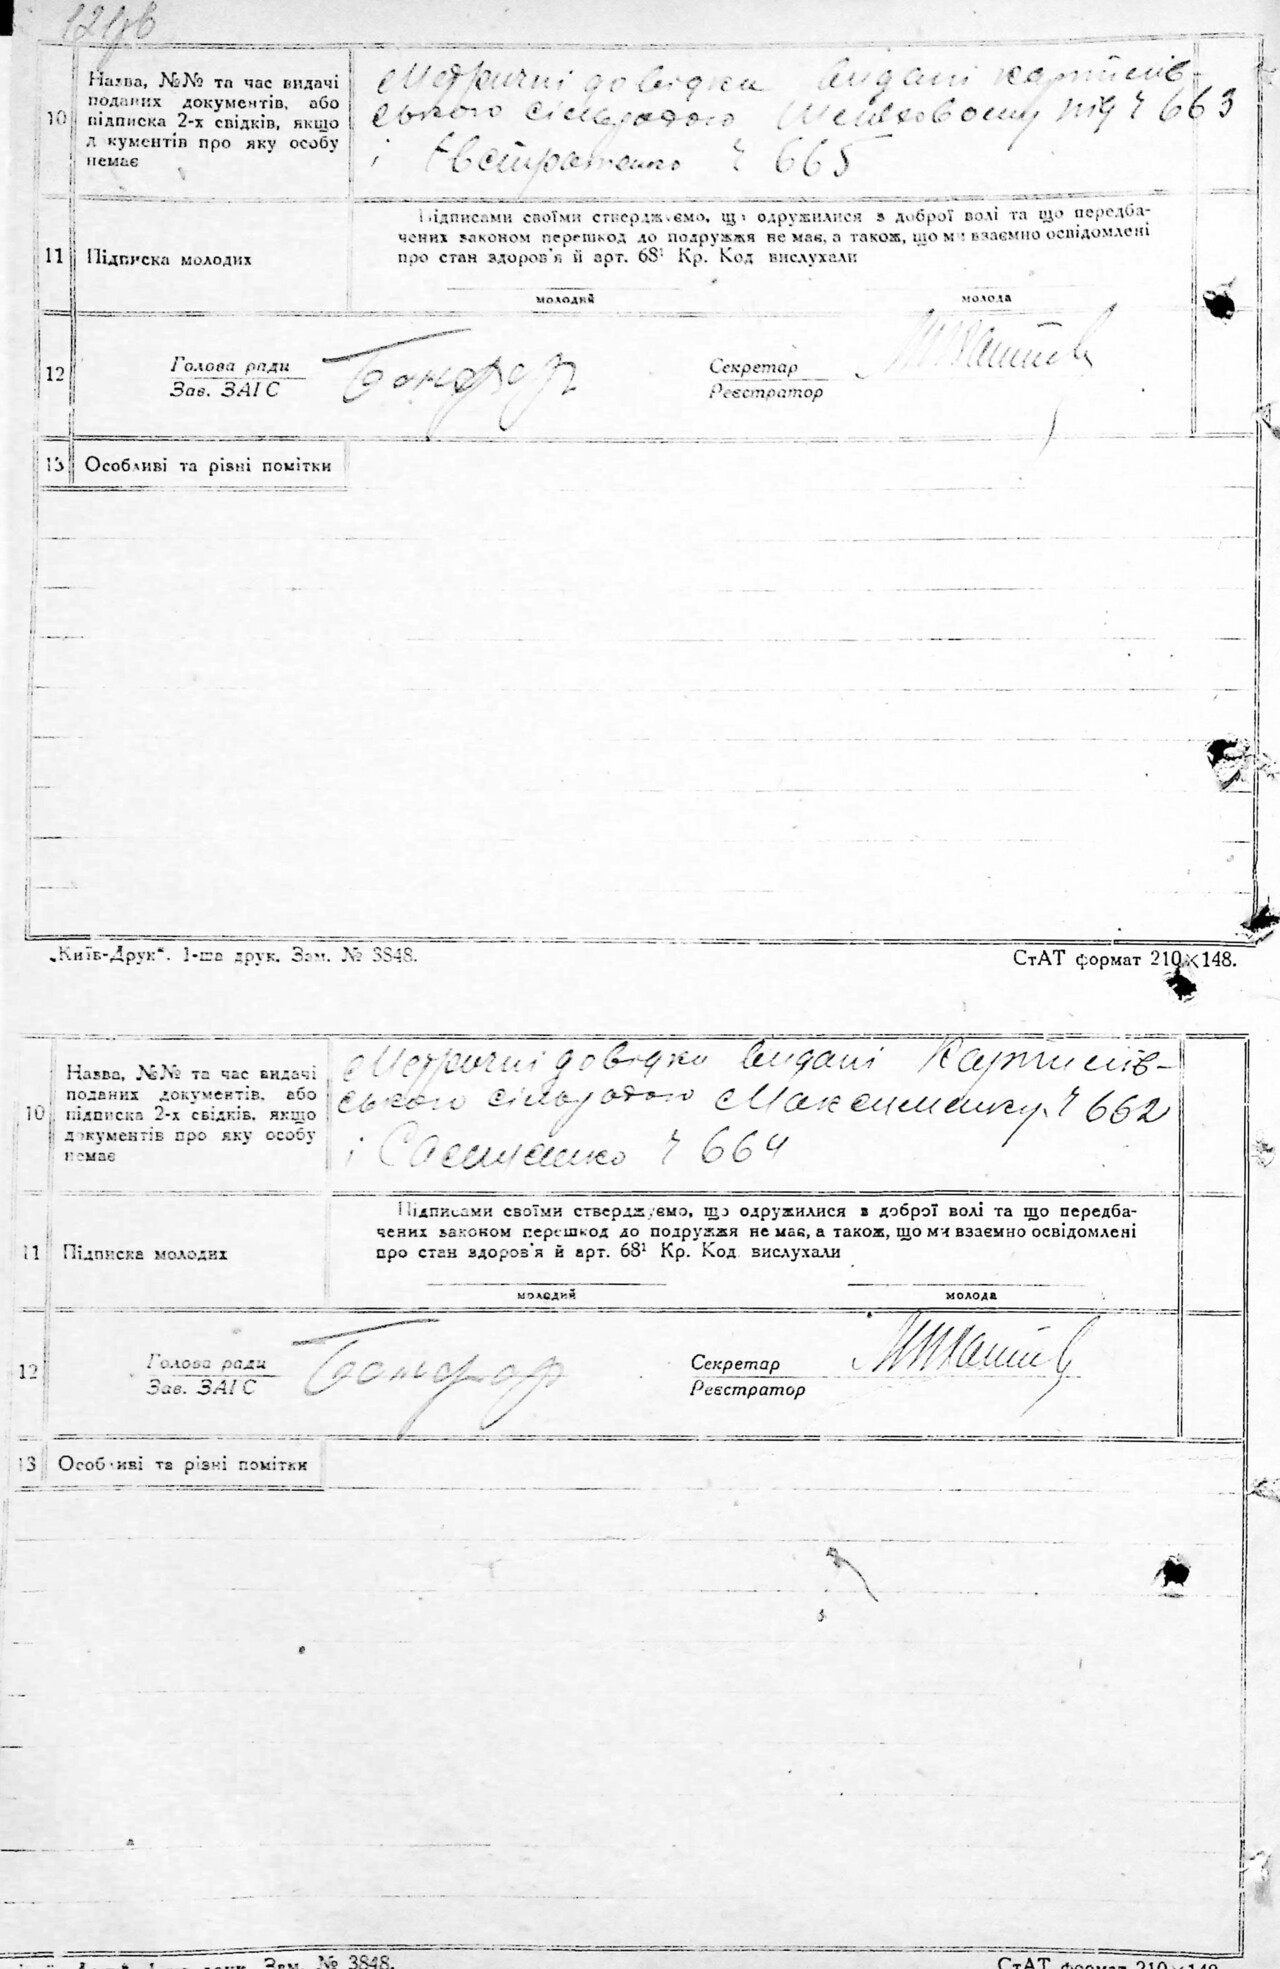 10
Назва, №№ та час видачі
поданих документів, або
підписка 2-х свідків, якщо
д кументів про яку особу
немає
Метричні довідки видані карпилів-
ською сільрадою під ч 663
і Євстратенко ч 665
11
Підписка молодих
Підписами своїми стверджуємо, що одружилися з доброї волі та що передба-
чених законом перешкод до подружжя не має, а також, що ми взаємно освідомлені
про стан здоров'я й арт. 68¹ Кр. Код вислухали
молодий
молода
12
Голова ради
Зав. ЗАГС
Бондар
Секретар
Реєстратор
13
Особливі та різні помітки
„Київ-Друк“. 1-ша друк. Зам. № 3848.
СтАТ формат 210×148.
10
Назва, №№ та час видачі
поданих документів, або
підписка 2-х свідків, якщо
документів про яку особу
немає
Метричні довідки видані Карпилів-
ською сільрадою Максименку ч 662
і ч 664
11
Підписка молодих
Підписами своїми стверджуємо, що одружилися з доброї волі та що передба-
чених законом перешкод до подружжя не має, а також, що ми взаємно освідомлені
про стан здоров'я й арт. 68¹ Кр. Код вислухали
молодий
молода
12
Голова ради
Зав. ЗАГС
Бондар
Секретар
Реєстратор
13
Особливі та різні помітки
друк. Зам. № 3848.
СтАТ формат 210×148